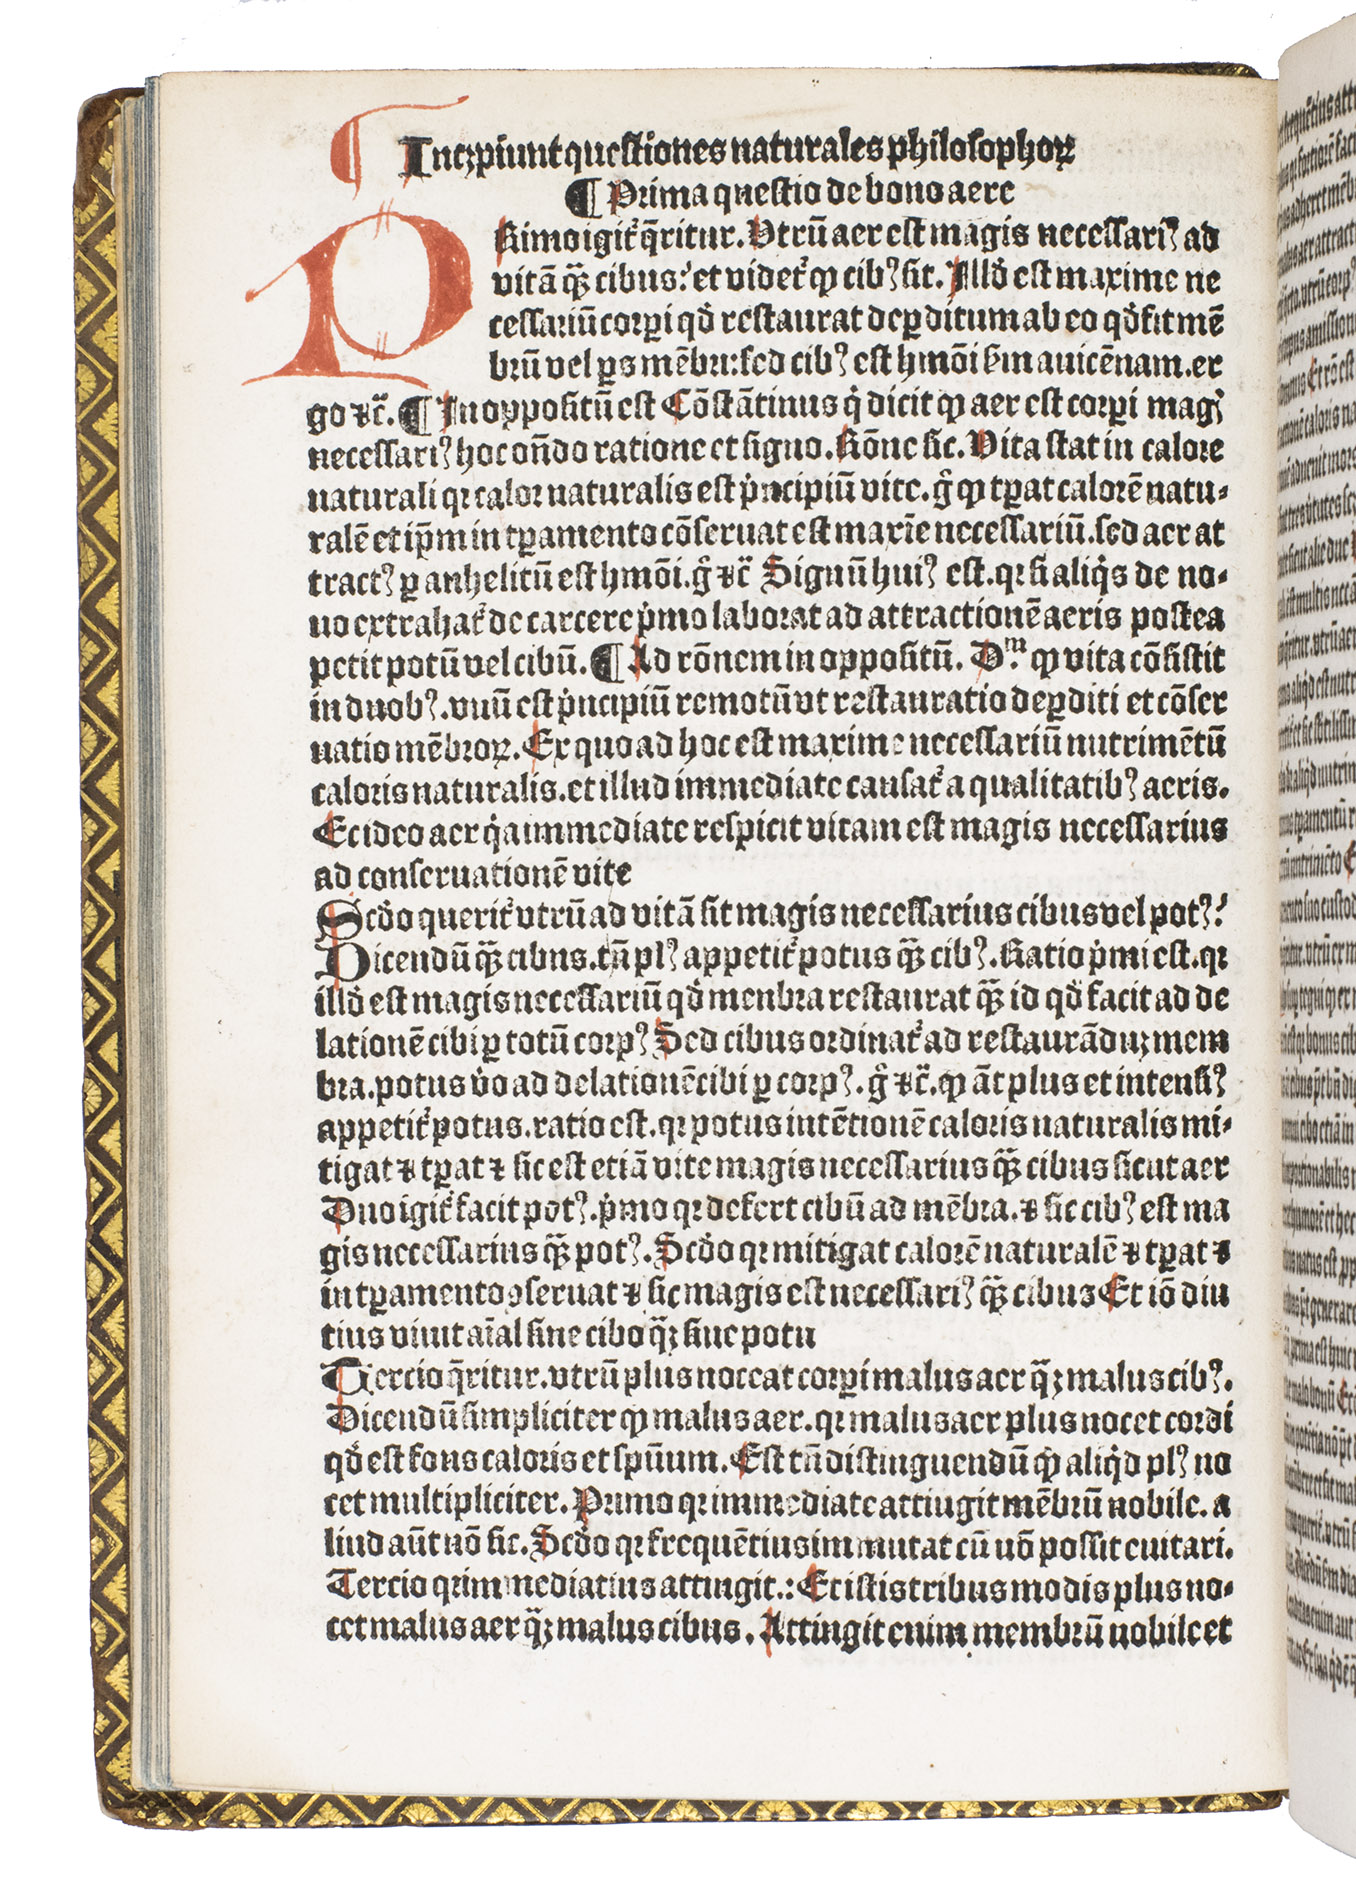 Incipiunt questiones naturales philosophoꝝ
¶ Prima questio de bono aere
PRimo igiť q̄ritur. Utrū aer est magis necessariꝰ ad
vitā q̄ꝫ cibus: et videť ꝙ cibꝰ sit. Illd̓ est maxime ne
cessariū corꝑi qd̓ restaurat deꝑditum ab eo qd̓ fit mē
brū vel ꝑs mēbri: sed cibꝰ est hmōi ẜm auicēnam. er
go ⁊c̄. ¶ In oppositū est Cōstātinus q̇ dicit ꝙ aer est corꝑi magꝭ
necessariꝰ hoc oñdo ratione et signo. Rōne sic. Vita stat in calore
naturali qꝛ calor naturalis est p̓ncipiū vite. g̊ ꝙ tꝑat calorē natu⸗
ralē et ip̄m in tꝑamento cōseruat est maxīe necessariū. sed aer at
tractꝰ ꝑ anhelitū est hmōi. g̊ ⁊c̄ Signū huiꝰ est. qꝛ si aliq̇s de no⸗
uo extrahať de carcere p̓mo laborat ad attractionē aeris postea
petit potū vel cibū. ¶ Ad rōnem in oppositū. Dᵐ ꝙ vita cōsistit
in duobꝰ. vnū est p̓ncipiū remotū vt restauratio deꝑditi et cōser
uatio mēbroꝝ. Ex quo ad hoc est maxime necessariū nutrimētū
caloris naturalis. et illud immediate causať a qualitatibꝰ aeris.
Et ideo aer q̇a immediate respicit vitam est magis necessarius
ad conseruationē vite
Scd̓o queriť vtrū ad vitā sit magis necessarius cibus vel potꝰ:
Dicendū q̄ꝫ cibus. tn̄ plꝰ appetiť potus q̄ꝫ cibꝰ. Ratio p̓mi est. qꝛ
illd̓ est magis necessariū qd̓ menbra restaurat q̄ꝫ id qd̓ facit ad de
lationē cibi ꝑ totū corpꝰ Sed cibus ordinať ad restaurāduꝫ mem
bra. potus v̓o ad delationē cibi ꝑ corpꝰ. g̊ ⁊c̄. ꝙ āt plus et intensiꝰ
appetiť potus. ratio est. qꝛ potus intētionē caloris naturalis mi⸗
tigat ⁊ tꝑat ⁊ sic est etiā vite magis necessarius q̄ꝫ cibus sicut aer
Duo igiť facit potꝰ. p̓mo qꝛ defert cibū ad mēbra. ⁊ sic cibꝰ est ma
gis necessarius q̄ꝫ potꝰ. Scd̓o qꝛ mitigat calorē naturalē ⁊ tꝑat ⁊
in tꝑamento ꝯseruat ⁊ sic magis est necessariꝰ q̄ꝫ cibus Et iō diu
tius viuit aīal sine cibo q̄ꝫ siue potu
Tercio q̄ritur. vtrū plus noceat corꝑi malus aer q̄ꝫ malus cibꝰ.
Dicendū simpliciter ꝙ malus aer. qꝛ malus aer plus nocet cordi
qd̓ est fons caloris et sp̄uum. Est tn̄ distinguendū ꝙ aliq̇d plꝰ no
cet multipliciter. Primo qꝛ immediate attingit mēbrū nobile. a
liud aūt nō sic. Scd̓o qꝛ frequētius immutat cū nō possit euitari.
Tercio qꝛ immediatius attingit.: Et istis tribus modis plus no⸗
cet malus aer q̄ꝫ malus cibus. Attingit enim membrū nobile et